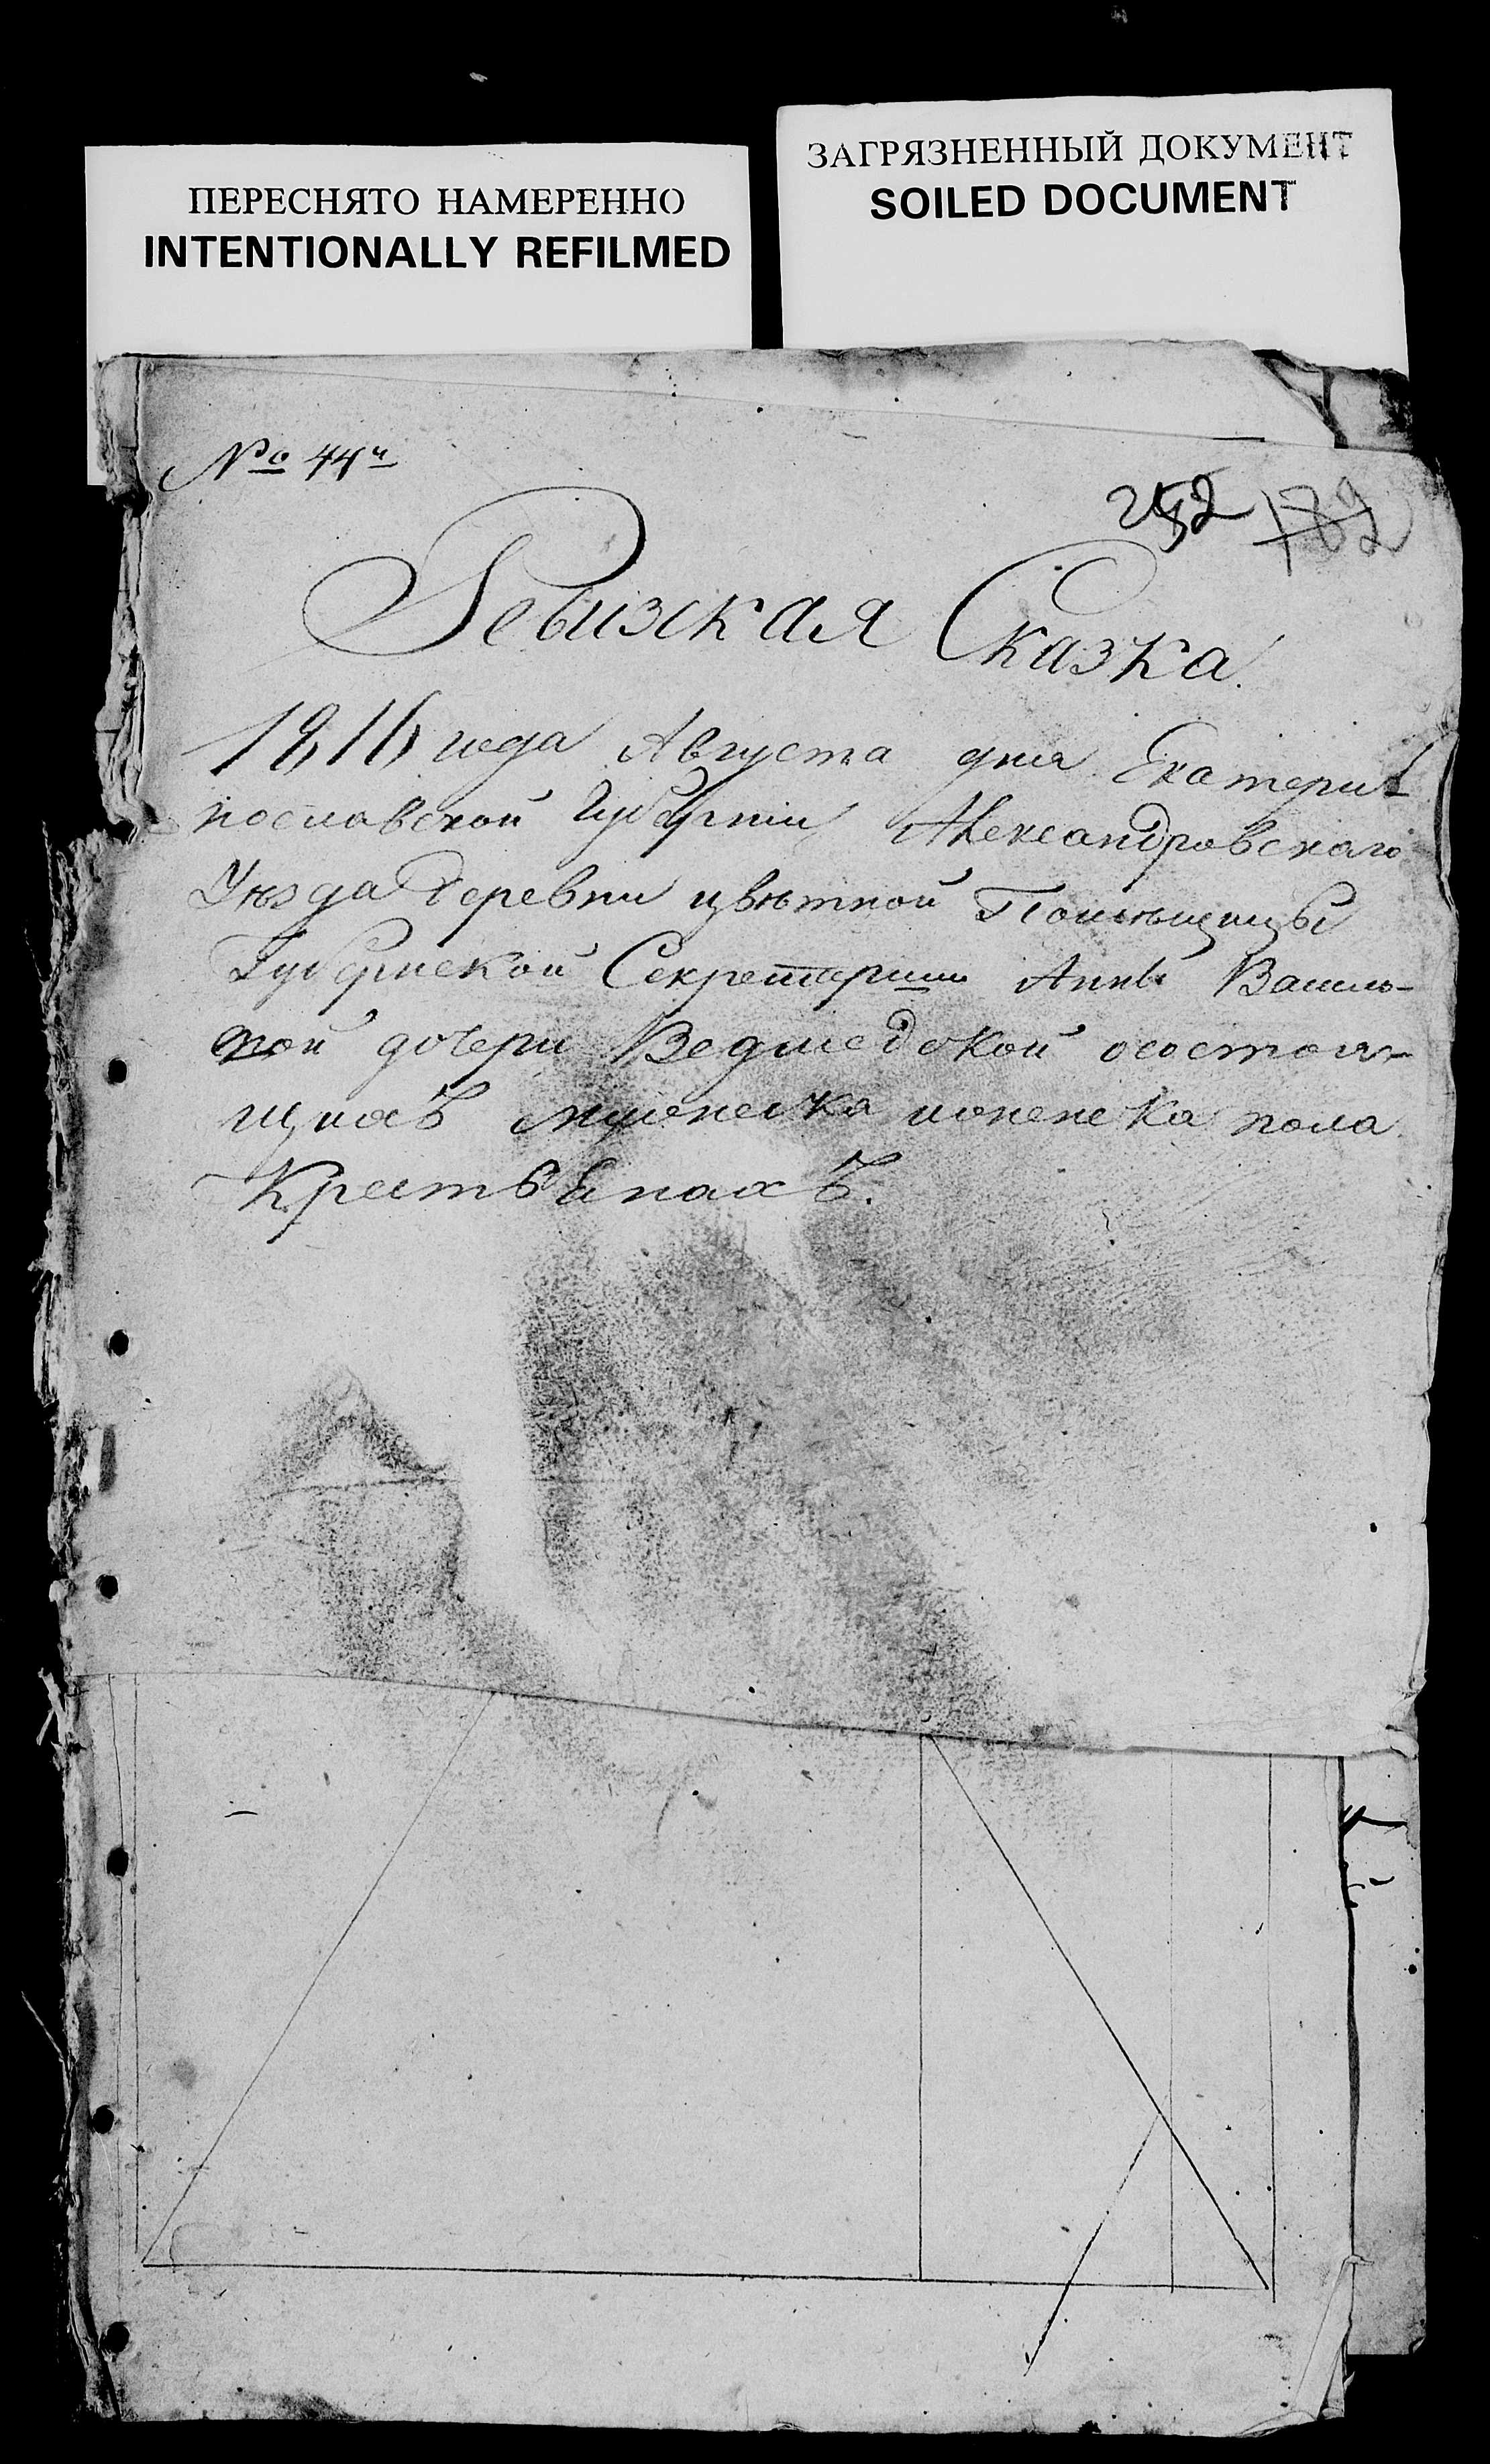 ПЕРЕСНЯТО НАМЕРЕННО
INTENTIONALLY REFILMED
ЗАГРЯЗНЕННЫЙ ДОКУМЕНТ
SOILED DOCUMENT
№ 44й
252 182
Ревизская Сказка.
1816 года Августа дня Екатери
нославской Губерніи Александровскаго
Уѣзда деревни цвѣтной Помѣщицы
Губернской Секретарши Анны Васил
ой дочери Ведмедской осостоя-
щихъ мужеска иженека пола
Крестьянахъ.